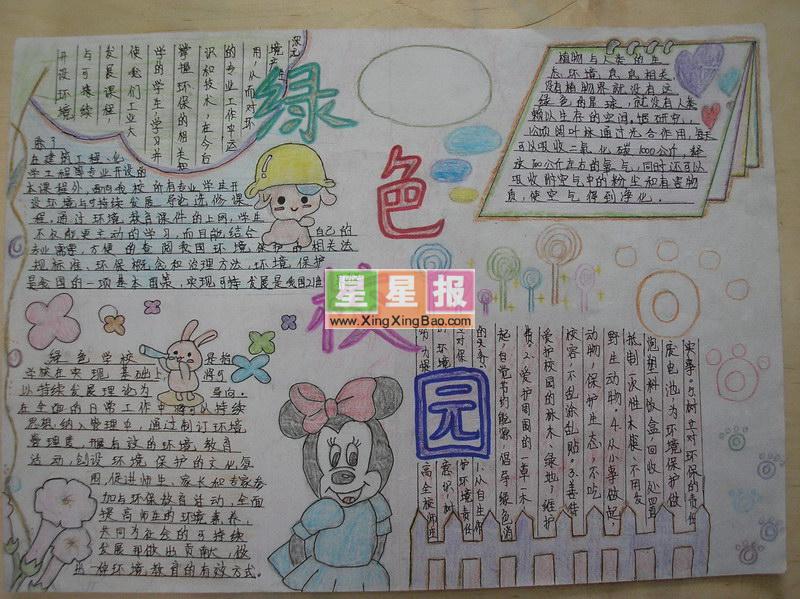 绿
色
校
园
星星报
www.XingXingBao.com
植物与人类的生
态环境息息相关
没有植物界就没有这
绿色的星球,就没有人类
赖以生存的空间。据研究,
公顷阔叶林通过光合作用,每天
可以吸收二氧化碳1000公斤,释
放730公斤左右的氧气,同时还可以
吸收贮空气中的粉尘和有害物
质,使空气得到净化。
用,从而对环
的专业工作中达
识和技术,在今后
掌握环保的相关知
学的学生,学习并
使我们工业大
发展课程
与可持续
开设环境
除了
在建筑工程、化
学工程等专业开设的
本课程外,面向我校所有专业学生开
设环境与可持续发展导论选修课
程,通过环境教育课件的上网,学生
不仅能更主动的学习,而且能结合自己的
专业需要,方便的查阅我国环境保护的相关法
规标准、环保概念和治理方法,环境保护
是我国的一项基本国策,实现可持续发展是我国21世
绿色学校是指
学校在实现基础上,将
以持续发展理论为导向。
在全面的日常工作中将可以持续
思想纳入管理中,通过制订环境
管理度,拥有效的环境教育
活动,创设环境保护的文化氛
围,促进师生、家长和专家参
加与环保教育活动,全面
提高师在的环境素养,
共同为社会的可持续
发展那做出贡献,做
出一种环境教育的有效方式。
实事。5.树立对环保的责任
废电池,为环境保护做
泡塑料饭盒回收处置
抵制一次性木筷,不用发
野生动物。4.从小事做起,
动物,保护生态,不吃
校容,不乱涂乱贴。3.善待
爱护校园的林木、绿地,维护
2.爱护周围的草木
起,自觉节约能源,倡导绿色消
1.从自身做